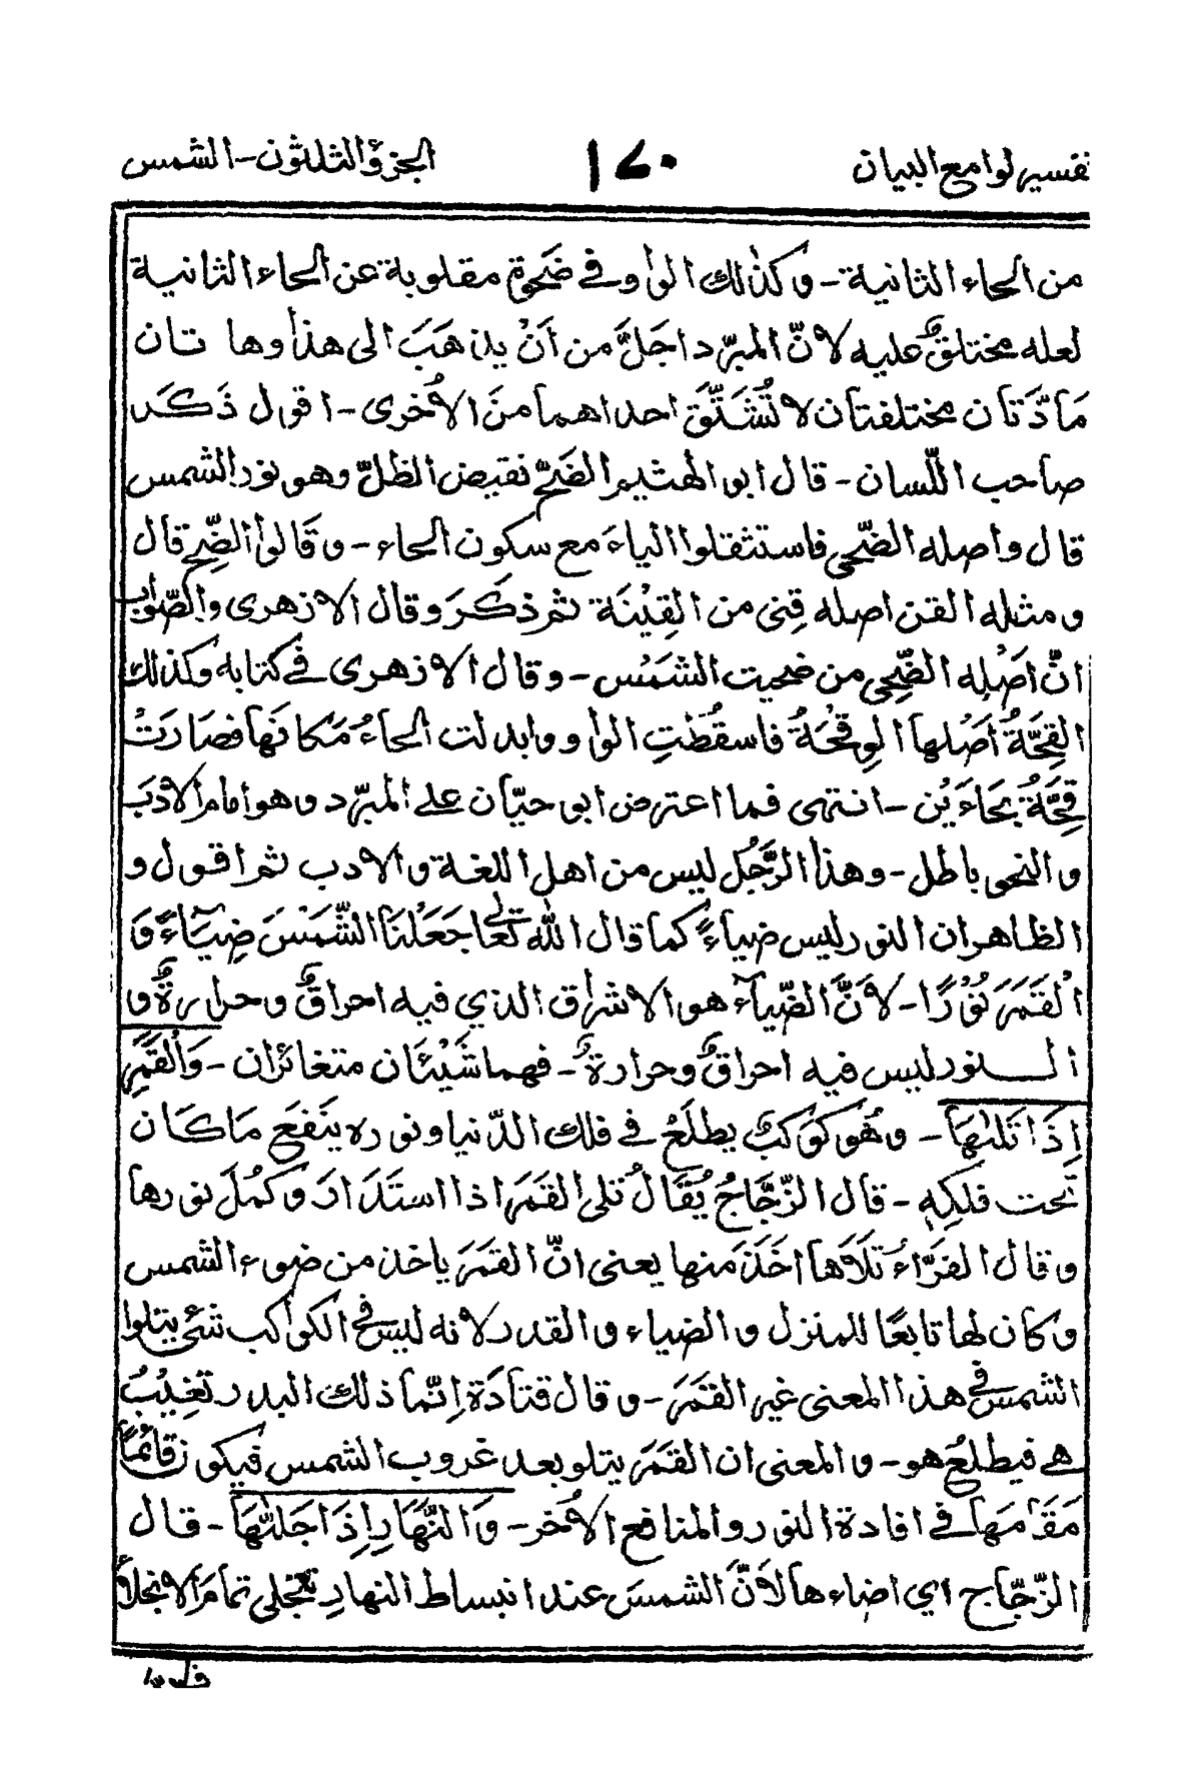 تفسير لوامع البيان
١٧٠
الجزؤ الثلثون - الشمس
من الحاء الثانية - وكذلك الواو في ضحوة مقلوبة عن الحاء الثانية
لعله مختلقٌ عليه لانّ المبرّد اجَلَّ من اَنْ يذهَبَ الى هذا وهاتان
مادَّتان مختلفتان لا تُشتَّقَ احداهما منَ الاُخرى - اقول ذَكَر
صاحب اللّسان - قال ابو الهثيم الضَحّ نقيض الظلّ وهو نور الشمس
قال واصله الضّحى فاستثقلوا الياءَ مع سكون الحاء - وقالوا الضّح قال
ومثله القن اصله قِنى من القِيْنَة ثم ذكَرَ وقال الازهرى والصّواب
انّ اصْله الضّحِى من ضحيت الشمْس - وقال الازهرى في كتابه وكذلك
القِحَّةُ اَصْلها الوِقْحَةُ فاسقُطتِ الواو وابدلت الحاءُ مَكانَها فصَارَتْ
قِحَّةُ بحاءَيْن - انتهى فما اعترض ابو حيّان على المبرّد وهو امام الادَب
والنحو باطل - وهذا الرَّجُل ليس من اهل اللغة والادب ثم اقول و
الظاهر ان النور ليس ضياءً كما قال الله تعالى جَعَلْنَا الشَّمْسَ ضِيَآءً وَّ
الْقَمَرَ نُوْرًا - لاَنَّ الضّيآء هو الاشراق الذي فيه احراقٌ وحرارةٌ و
النور ليس فيه احراقٌ وحرارةٌ - فهما شَيْئَان متغائران - وَالْقَمَرِ
اِذَا تَلٰىهَا - وهُو كوَكبٌ يطلَعُ في فلك الدّنيا ونوره ينَفَع مَا كَان
تحت فلكِه - قال الزّجَّاجُ يُقَالُ تلى القمَرَ اذا استَدَارَ وكَمُلَ نورها
وقال الفرَّاءُ تَلَاهَا اخَذَ مَنها يعنى انّ القمَرَ ياخذ من ضوء الشمس
وكان لها تابعًا للمنزل والضياء والقدر لانه ليس في الكواكب شئ يتلوا
الشمس في هذا المعنى غير القمَرَ - وقال قتادَة اِنّما ذلك البدر تغيْبُ
هي فيطلعُ هو - والمعنى ان القمَرَ يتلو بعد غروب الشمس فيكون قائمًا
مَقَامَها في افادة النور والمنافع الاُخر - وَالنَّهَارِ اِذَا جَلّٰىهَا - قال
الزّجّاج اي اضاءها لاَنَّ الشمسَ عند انبساط النهارِ تنجلى تمامَ الانجلاء